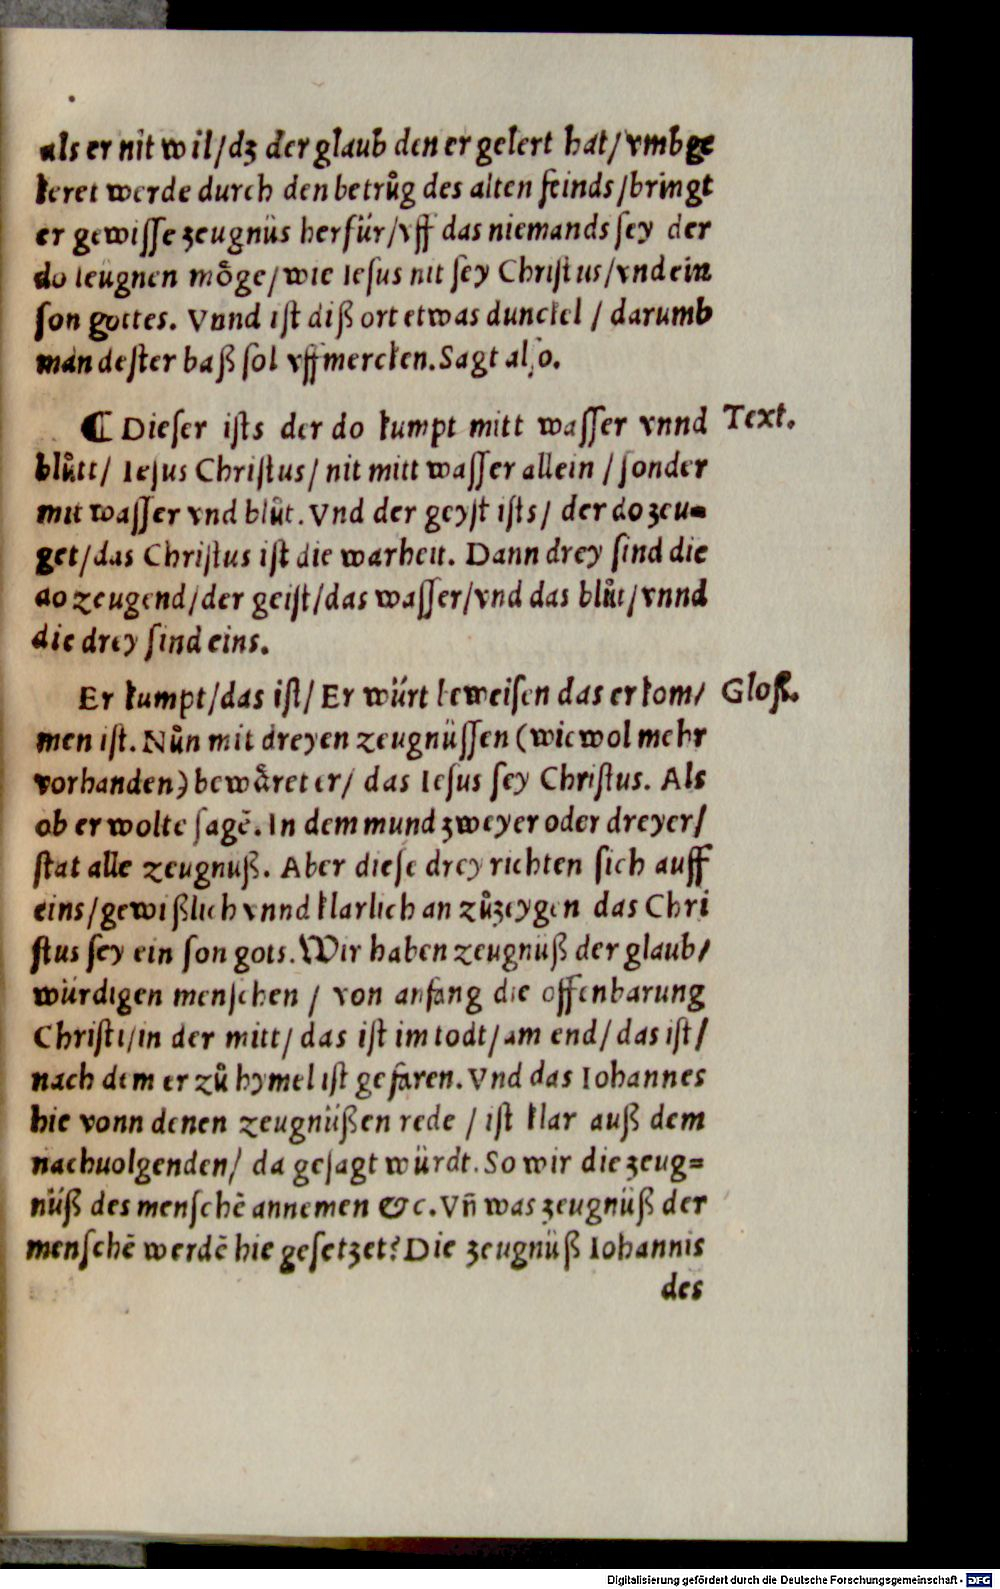 als er nit wil/dʒ der glaub den er gelert hat/vmbge
keret werde durch den betrůg des alten feinds/bringt
er gewiſſe zeugnüs herfür/vff das niemands ſey der
do leugnen mo̊ge/wie Ieſus nit ſey Chriſtus/vnd ein
ſon gottes. Vnnd iſt diß ort etwas dunckel / darumb
man deſter baß ſol vffmercken. Sagt alſo.
¶ Dieſer iſts der do kumpt mitt waſſer vnnd
Text.
blůtt/ Ieſus Chriſtus/ nit mitt waſſer allein / ſonder
mit waſſer vnd blůt. Vnd der geyſt iſts/ der do zeu-
get/das Chriſtus iſt die warheit. Dann drey ſind die
do zeugend/der geiſt/das waſſer/vnd das blůt/vnnd
die drey ſind eins.
Er kumpt/das iſt/ Er würt beweiſen das er kom/
Gloſ.
men iſt. Nůn mit dreyen zeugnüſſen (wiewol mehr
vorhanden) bewåret er/ das Ieſus ſey Chriſtus. Als
ob er wolte ſagē. In dem mund zweyer oder dreyer/
ſtat alle zeugnuß. Aber dieſe drey richten ſich auff
eins/gewißlich vnnd klarlich an zůzeygen das Chri
ſtus ſey ein ſon gots. Wir haben zeugnüß der glaub/
würdigen menſchen / von anfang die offenbarung
Chriſti/in der mitt/ das iſt im todt/am end/das iſt/
nach dem er zů hymel iſt gefaren. Vnd das Iohannes
hie vonn denen zeugnüßen rede / iſt klar auß dem
nachuolgenden/ da geſagt würdt. So wir die zeug=
nüß des menſchē annemen &c. Vn̄ was zeugnüß der
menſchē werdē hie geſetzet? Die zeugnüß Iohannis
des
Digitalisierung gefördert durch die Deutsche Forschungsgemeinschaft - DFG